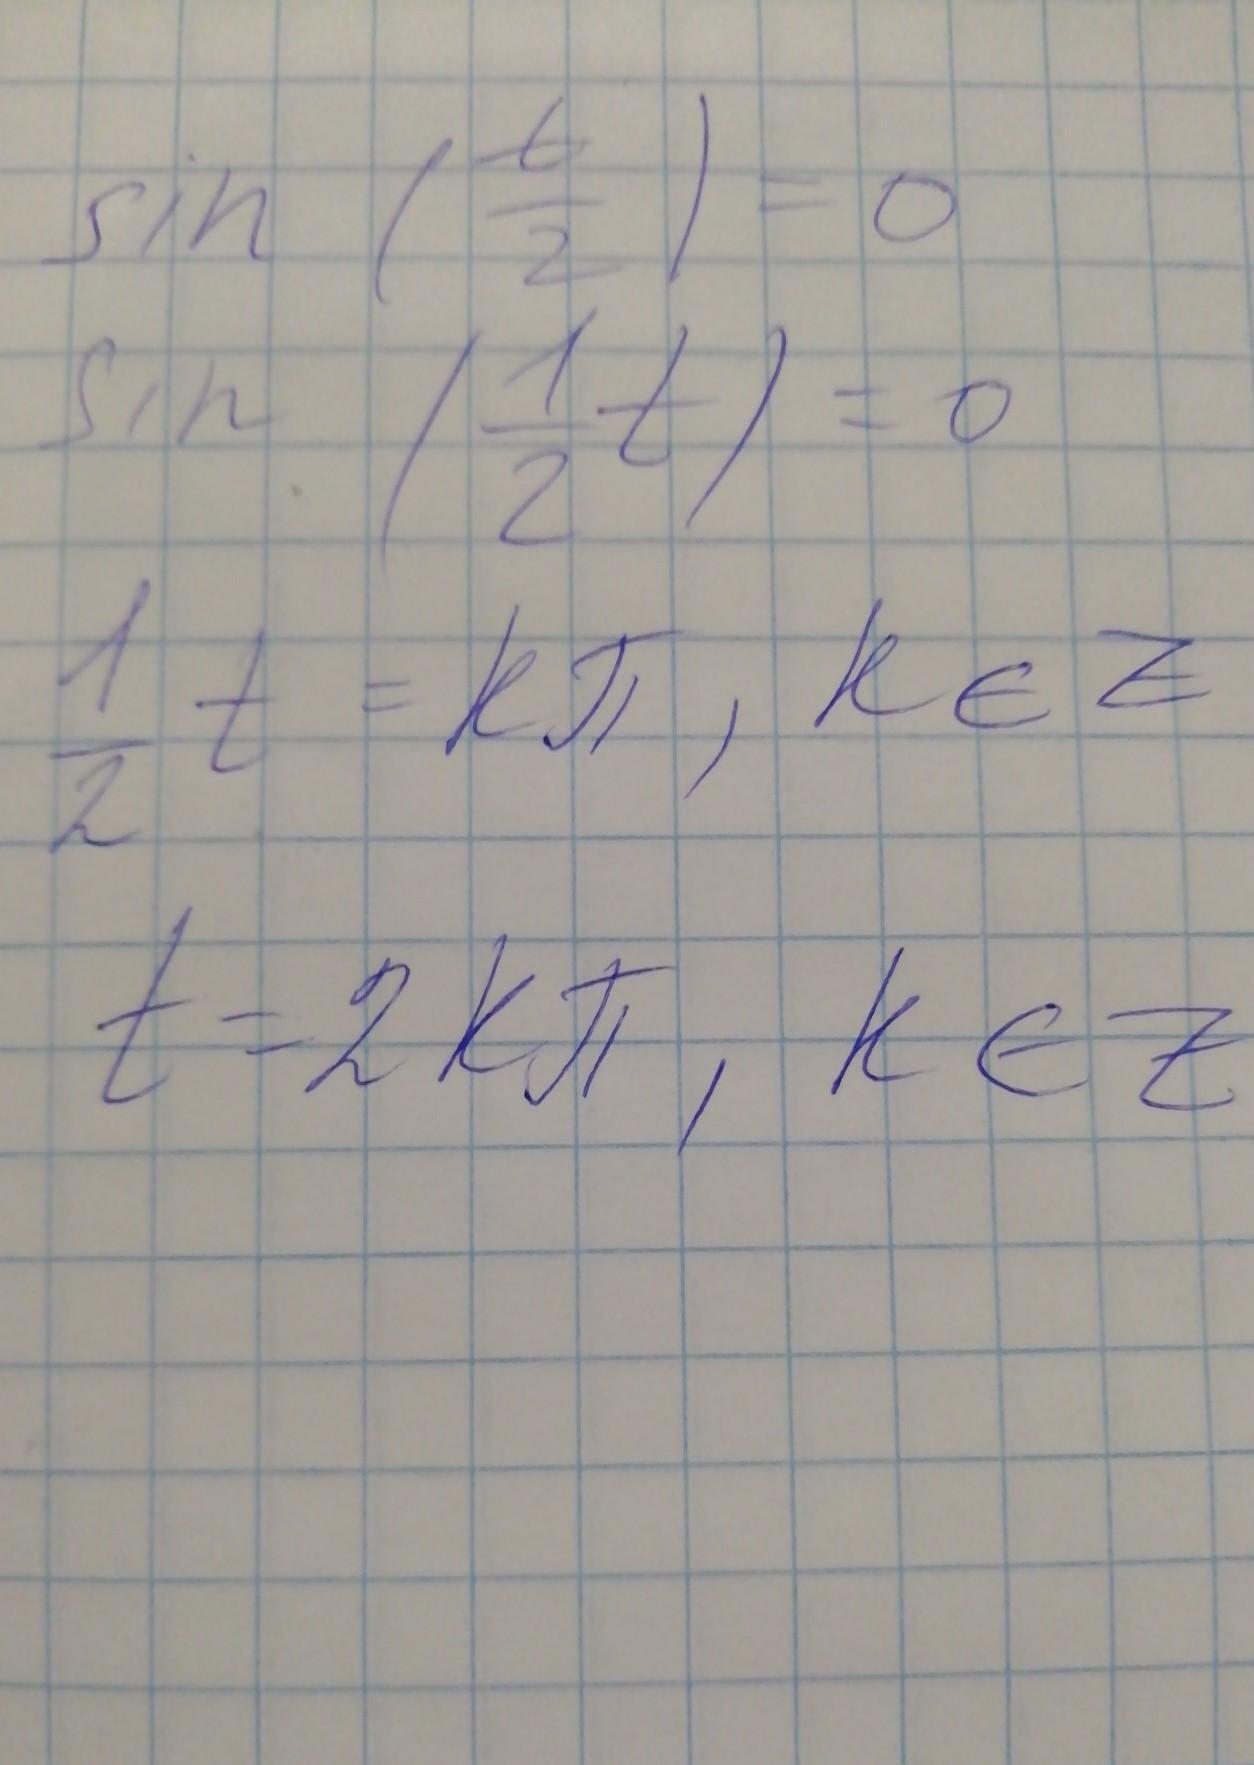 sin (t/2) = 0
sin (1/2 t) = 0
1/2 t = kπ, k ∈ Z
t = 2kπ, k ∈ Z